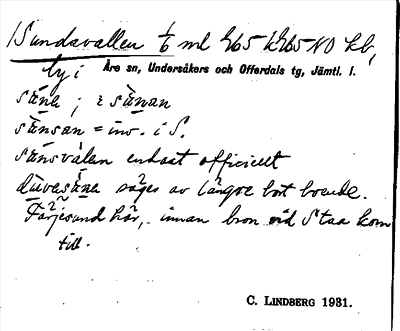 Sundsvallen 1/6 ml
by i Åre sn, Undersåkers och Offerdals tg, Jämtl. l.
säna ; i sänan
sänsan = inv. i S.
sänsvalen endast officiellt
säges av längre bort boende.
Färjesund här, innan bron vid Staa kom
till.
C. LINDBERG 1931.